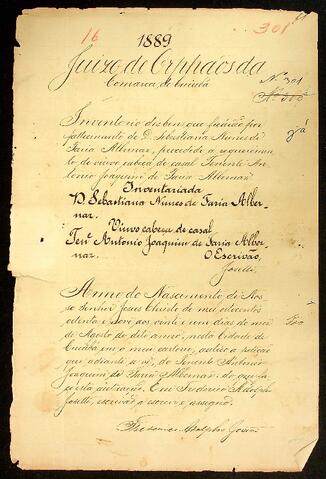 16
1889
301
Juizo de Orphãos da
Comarca de Cuiabá
Nº 301
Inventario dos bens que ficárão por
fallecimento de D. Sebastiana Nunes de
Faria Albernaz, procedido a requerimen-
to do viuvo cabeça de casal Tenente An-
tonio Joaquim de Faria Albernaz.
Inventariada
D. Sebastiana Nunes de Faria Alber-
naz.
Viuvo cabeça de casal
Tenᵉ Antonio Joaquim de Faria Alber-
naz.
O Escrivão,
Josetti.
Anno do Nascimento de Nos-
so Senhor Jesus Christo de mil oitocentos
oitenta e nove aos vinte e um dias do mez
de Agosto do dito anno, nesta Cidade de
Cuiabá em o meu cartorio, autúo a petição
que adiante se vê, do Tenente Antonio
Joaquim de Faria Albernaz do que fiz
esta autuação. Eu Frederico Adolpho
Josetti, escrivão o escrevi e assigno.
Frederico Adolpho Josetti